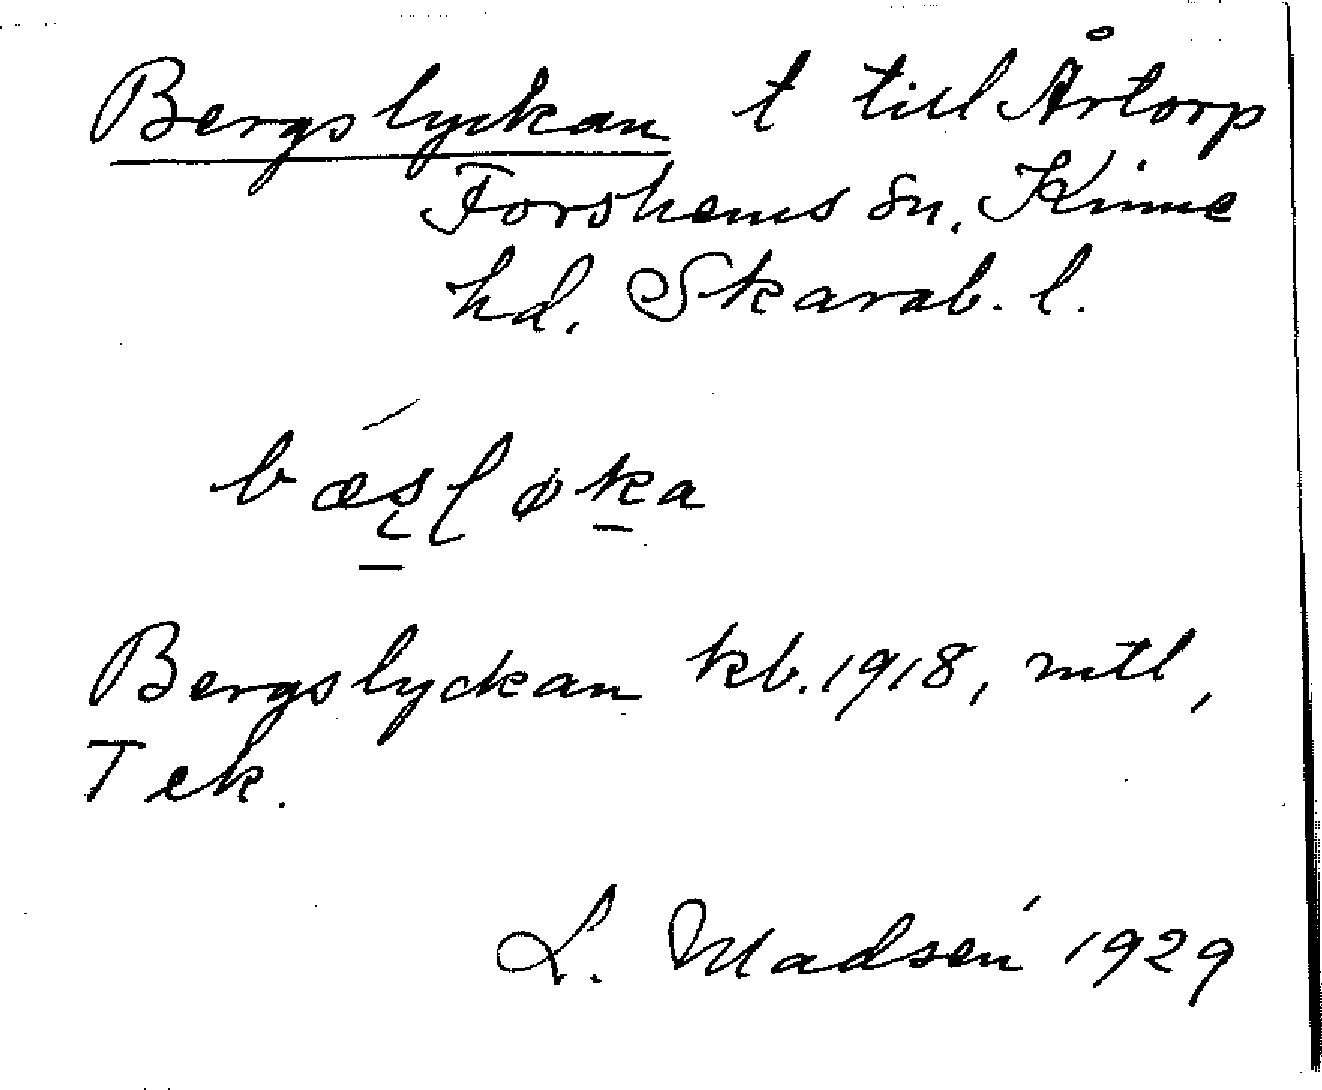 Bergslyckan t till Årtorp
Forshems sn, Kinne
hd. Skarab. l.
bǽsløka
Bergslyckan kb. 1918, mtl,
Tek.
L. Madsén 1929